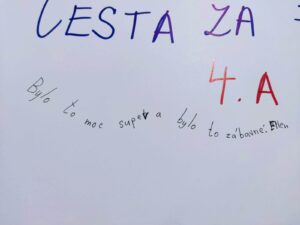 CESTA ZA
4. A
Bylo to moc super a bylo to zábavné. Ellen